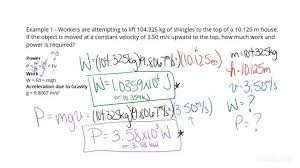 Example 1 - Workers are attempting to lift 104.325 kg of shingles to the top of a 10.125 m house.
If the object is moved at a constant velocity of 3.50 m/s upward to the top, how much work and
power is required?
mg
Power
P = W/t = Fd/t = Fv
Work
W = Fd = mgh
Acceleration due to Gravity
g = 9.8067 m/s²
W=(104.325kg)(9.8067m/s²)(10.125m)
W=1.0359x10⁴ J
or 10.359kJ
P=mgv=(104.325kg)(9.8067m/s²)(3.50m/s)
P=3.58x10³ W
or 3.58 kW
m=104.325kg
h=10.125m
v=3.50m/s
W=?
P=?